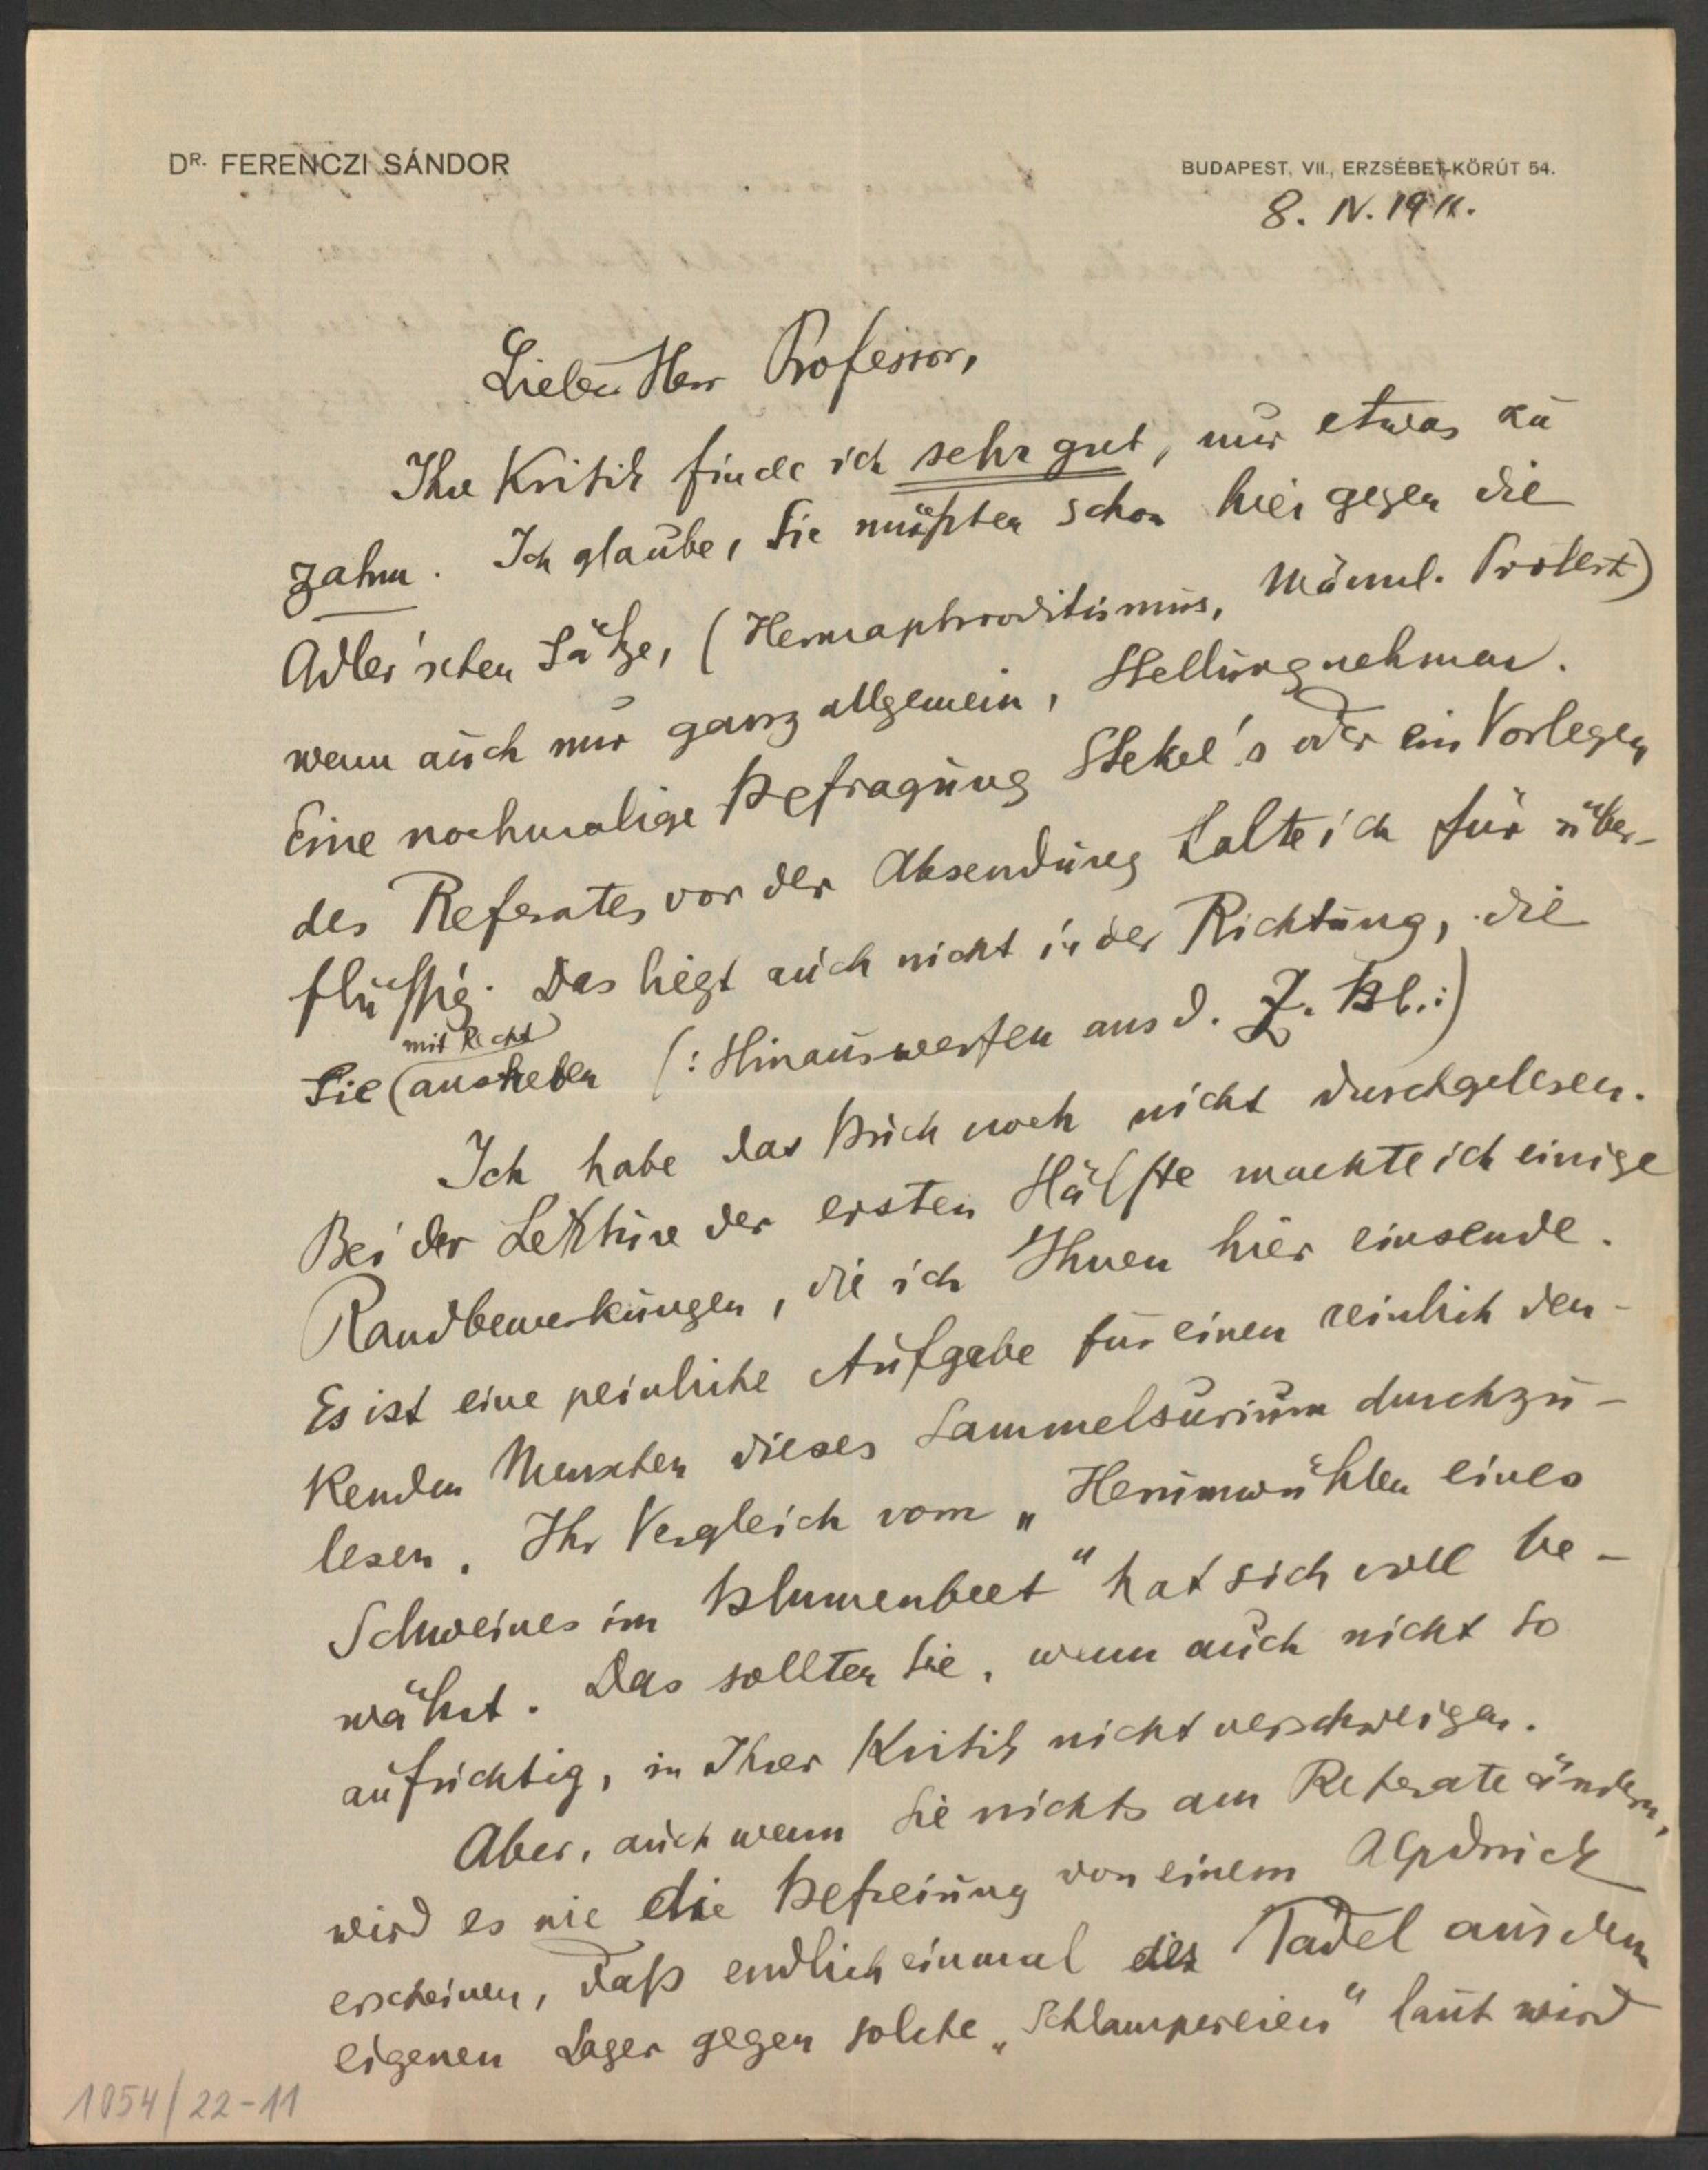 DR. FERENCZI SÁNDOR
BUDAPEST, VII., ERZSÉBET-KÖRÚT 54.
8. IV. 1911.
Lieber Herr Professor,
Ihre Kritik finde ich sehr gut, nur etwas zu
zahm. Ich glaube, Sie müßten schon hier gegen die
Adler'schen Sätze, (Hermaphroditismus, Männl. Protest)
wenn auch nur ganz allgemein, Stellung nehmen.
Eine nochmalige Befragung Stekel's oder ein Vorlegen
des Referates vor der Absendung halte ich für über-
flüssig. Das liegt auch nicht in der Richtung, die
Sie (mit Recht) anstreben (: Hinauswerfen aus d. Z. Bl.:)
Ich habe das Buch noch nicht durchgelesen.
Bei der Lektüre der ersten Hälfte machte ich einige
Randbemerkungen, die ich Ihnen hier einsende.
Es ist eine peinliche Aufgabe für einen reinlich den-
kenden Menschen dieses Sammelsurium durchzu-
lesen. Ihr Vergleich vom „Herumwühlen eines
Schweines im Blumenbeet" hat sich voll be-
währt. Das sollten Sie, wenn auch nicht so
aufrichtig, in Ihrer Kritik nicht verschweigen.
Aber, auch wenn Sie nichts am Referate ändern,
wird es wie die Befreiung von einem Alpdruck
erscheinen, daß endlich einmal der Tadel aus dem
eigenen Lager gegen solche „Schlampereien" laut wird
1054/22-11